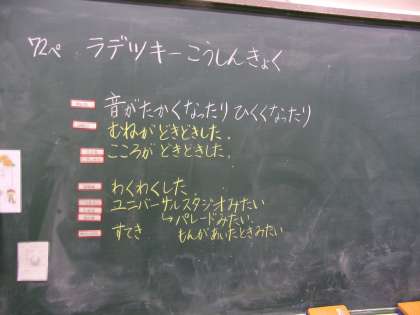 72ペ ラデツキーこうしんきょく
音がたかくなったりひくくなったり
むねがどきどきした。
こころがどきどきした。
わくわくした
ユニバーサルスタジオみたい
↳パレードみたい。
すてき もんがあいたときみたい